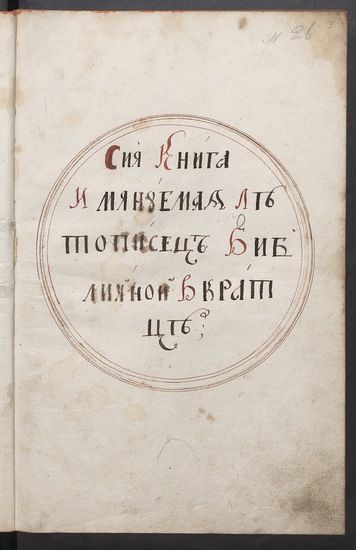 № 26
Сия Книга
Имянꙋемаѧ Лѣ
тописецъ Биб
лияной Вкрат
цѣ: